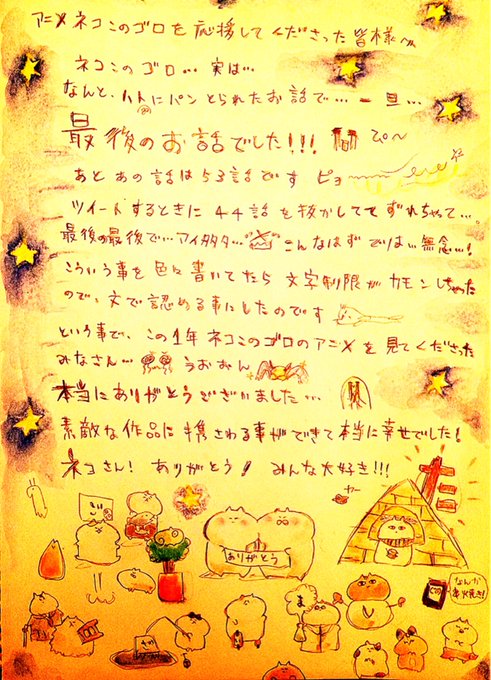 アニメ ネコこのゴロを応援してくださった皆様へ
ネコこのゴロ… 実は…
なんと、ハトにパンとられたお話で… 一旦…
最後のお話でした!!! ぴ〜
あと あの話は53話です ピョ
ツイートするときに 44話を抜かしててずれちゃって…。
最後の最後で… アイタタタ… こんなはずでは… 無念…!
こういう事を色々書いてたら 文字制限がカモンしちゃった
ので、文で認める事にしたのです
という事で、この1年 ネコこのゴロのアニメを見てくださった
みなさん… うおおん
本当にありがとうございました…
素敵な作品に携さわる事ができて本当に幸せでした!
ネコさん! ありがとう! みんな大好き!!!
ありがとう
ま
なんか